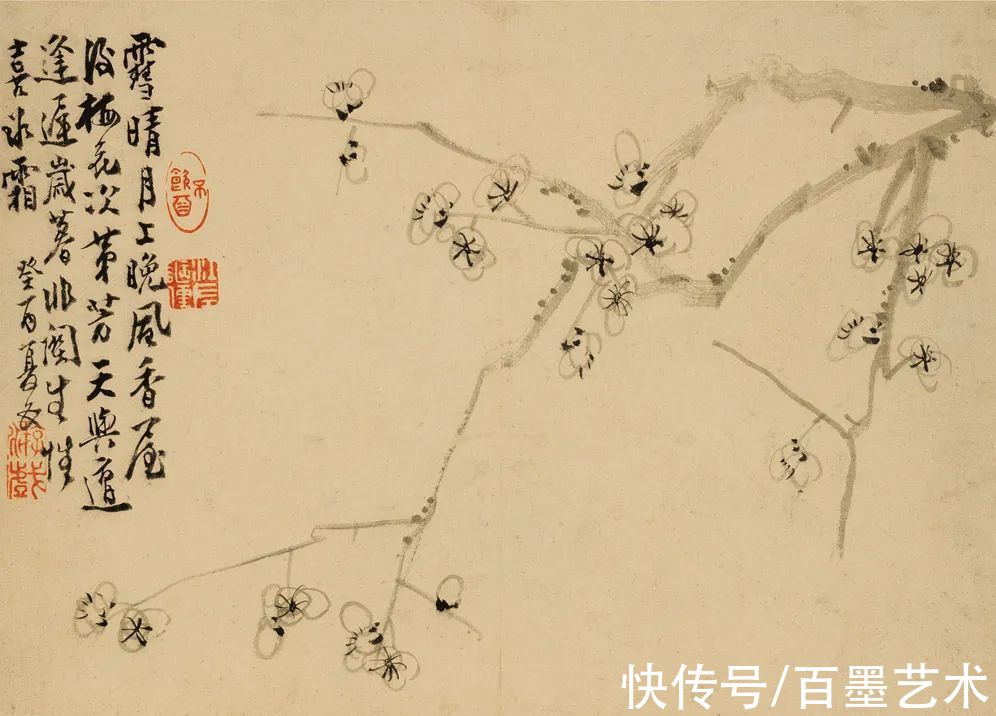 雪晴月上晚風香屋
後梅花次第芳天與遭
逢遲歲暮非關生性
喜氷霜
癸酉夏
快传号/百墨艺术